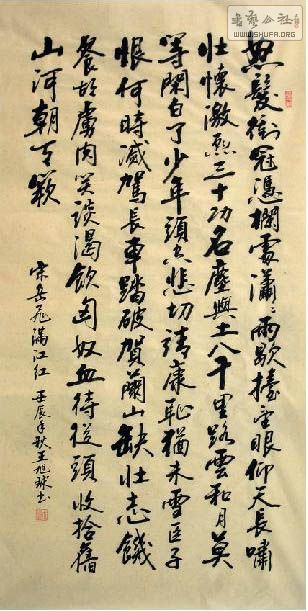 書藝公社
WWW.SHUFA.ORG
怒髮衝冠憑欄處瀟〻雨歇擡望眼仰天長嘯
壯懷激烈三十功名塵與土八千里路雲和月莫
等閑白了少年頭空悲切靖康恥猶未雪臣子
恨何時滅駕長車踏破賀蘭山缺壯志饑
餐胡虜肉笑談渴飲匈奴血待從頭收拾舊
山河朝天闕
宋岳飛滿江紅 壬辰年秋王旭球书